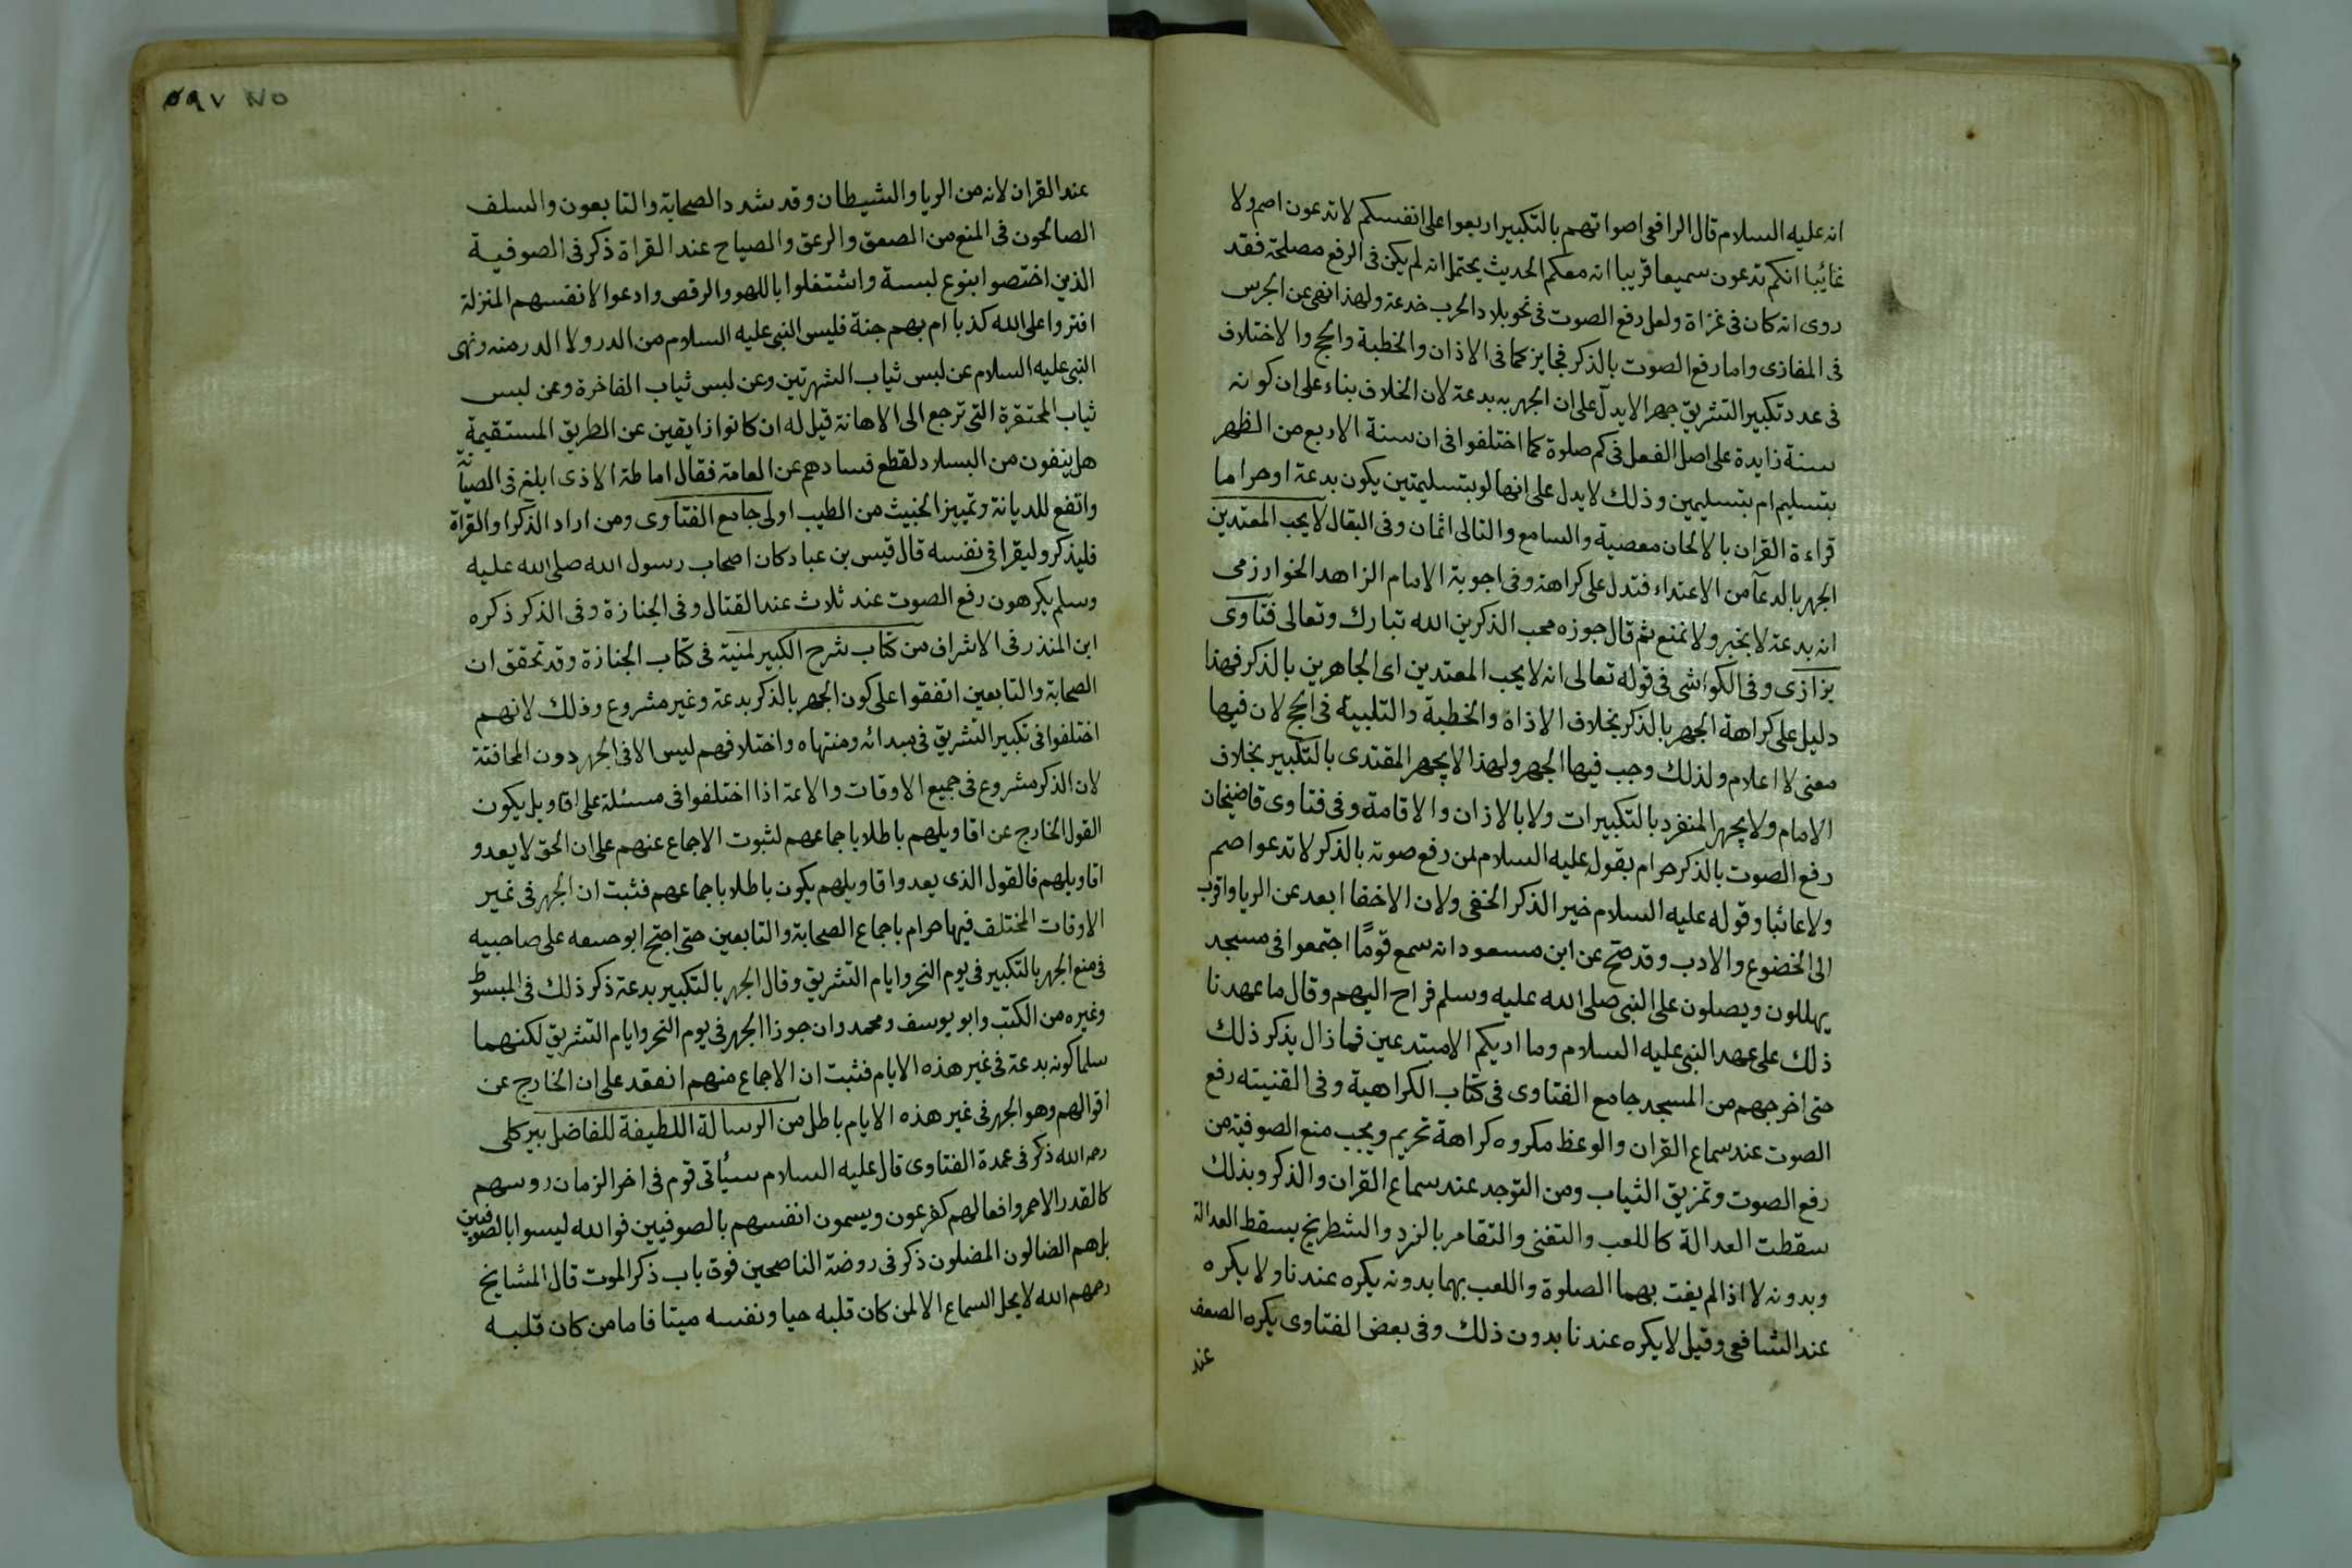 انه عليه السلام قال الرافعى اصواتهم بالتكبير اربعوا على انفسكم لا تدعون اصم ولا
غائبا انكم تدعون سميعا قريبا انه معكم الحديث يحتمل انه لم يكن فى الرفع مصلحة فقد
روى انه كان فى غزاة ولعل رفع الصوت فى نحو بلاد الحرب خدعة ولهذا نهى عن الجرس
فى المغازى واما رفع الصوت بالذكر فجايز كما فى الاذان والخطبة والحج والاختلاف
فى عدد تكبير التشريق جهرا لا يدل على ان الجهر به بدعة لان الخلاف بناء على ان كونه
سنة زايدة على اصل الفعل فى كم صلوة كما اختلفوا فى ان سنة الاربع من الظهر
بتسليم ام بتسليمين وذلك لا يدل على انها لو بتسليمتين يكون بدعة او حراما
قراءة القران بالالحان معصية والسامع والتالى اثمان وفى البقال لا يحب المعتدين
الجهر بالدعآ من الاعتداء فتدل على كراهة وفى اجوبة الامام الزاهد الخوارزمى
انه بدعة لا بخبر ولا نمنع ثم قال جوزه محب الذكرين الله تبارك وتعالى فتاوى
بزازى وفى الكواشى فى قوله تعالى انه لا يحب المعتدين اى الجاهرين بالذكر فهذا
دليل على كراهة الجهر بالذكر بخلاف الاذاة والخطبة والتلبية فى الحج لان فيها
معنى لا اعلام ولذلك وجب فيها الجهر ولهذا لا يجهر المقتدى بالتكبير بخلاف
الامام ولا يجهر المنفرد بالتكبيرات ولا بالازان والاقامة وفى فتاوى قاضيخان
رفع الصوت بالذكر حرام بقول عليه السلام لمن رفع صوته بالذكر لا تدعوا صم
ولا عائبا وقوله عليه السلام خير الذكر الخفى ولان الاخفا ابعد عن الريا واقرب
الى الخضوع والادب وقد صح عن ابن مسعود انه سمع قومًا اجتمعوا فى مسجد
يهللون ويصلون على النبى صلى الله عليه وسلم فراح اليهم وقال ما عهدنا
ذلك على عهد النبى عليه السلام وما اريكم الا مبتدعين فما زال يذكر ذلك
حتى اخرجهم من المسجد جامع الفتاوى فى كتاب الكراهية وفى القنيته رفع
الصوت عند سماع القران والوعظ مكروه كراهة تحريم ويجب منع الصوفية من
رفع الصوت وتمزيق الثياب ومن التوجد عند سماع القران والذكر وبذلك
سقطت العدالة كاللعب والتغنى والتقامر بالنرد والشطرنج بسقط العدالة
وبدونه لا اذا لم يفت بهما الصلوة واللعب بهما بدونه يكره عندنا ولا يكره
عند الشافعى وقيل لا يكره عندنا بدون ذلك وفى بعض الفتاوى يكره الصعف
عند
٥٩٧ No
عند القران لانه من الريا والشيطان وقد شدد الصحابة والتابعون والسلف
الصالحون فى المنع من الصعق والرعق والصياح عند القراة ذكر فى الصوفية
الذين اختصوا بنوع لبسة واشتغلوا باللهو والرقص وادعوا لانفسهم المنزلة
افتروا على الله كذبا ام بهم جنة فليس النبى عليه السلام من الدر ولا الدر منه ونهى
النبى عليه السلام عن لبس ثياب الشهرتين وعن لبس ثياب الفاخرة وعن لبس
ثياب المحتقرة التى ترجع الى الاهانة قيل له ان كانوا زايقين عن الطريق المستقيمة
هل ينفون من البسلاد لقطع فسادهم عن العامة فقال اماطة الاذى ابلغ فى الصيانة
واتفع للديانة وتمييز الخبيث من الطيب اولى جامع الفتاوى ومن اراد الذكر او القراة
فليذكر وليقرا فى نفسه قال قيس بن عباد كان اصحاب رسول الله صلى الله عليه
وسلم يكرهون رفع الصوت عند ثلاث عند القتال وفى الجنازة وفى الذكر ذكره
ابن المنذر فى الاشراف من كتاب شرح الكبير لمنية فى كتاب الجنازة وقد تحقق ان
الصحابة والتابعين اتفقوا على كون الجهر بالذكر بدعة وغير مشروع وذلك لانهم
اختلفوا فى تكبير التشريق فى مبدائه ومنتهاه واختلافهم ليس الا فى الجهر دون المخافتة
لان الذكر مشروع فى جميع الاوقات والاعة اذا اختلفوا فى مسئلة على اقاويل يكون
القول الخارج عن اقاويلهم باطلا باجماعهم لثبوت الاجماع عنهم على ان الحق لا يعدو
اقاويلهم فالقول الذى يعدوا قاويلهم يكون باطلا باجماعهم فثبت ان الجهر فى غير
الاوقات المختلف فيها حرام باجماع الصحابة والتابعين حتى احتج ابو حنيفه على صاحبيه
فى منع الجهر بالتكبير فى يوم النحر وايام التشريق وقال الجهر بالتكبير بدعة ذكر ذلك فى المبسوط
وغيره من الكتب وابو يوسف ومحمد وان جوزا الجهر فى يوم النحر وايام التشريق لكنهما
سلما كونه بدعة فى غير هذه الايام فثبت ان الاجماع منهم انعقد على ان الخارج عن
اقوالهم وهو الجهر فى غير هذه الايام باطل من الرسالة اللطيفة للفاضل بيركلى
رحمه الله ذكر فى عمدة الفتاوى قال عليه السلام سيأتى قوم فى اخر الزمان روسهم
كالقدر الاحمر وافعالهم كفرعون ويسمون انفسهم بالصوفيين فوالله ليسوا بالصوفيين
بل هم الضالون المضلون ذكر فى روضة الناصحين فوق باب ذكر الموت قال المشايخ
رحمهم الله لا يحل السماع الا لمن كان قلبه حيا ونفسه ميتا فاما من كان قلبه